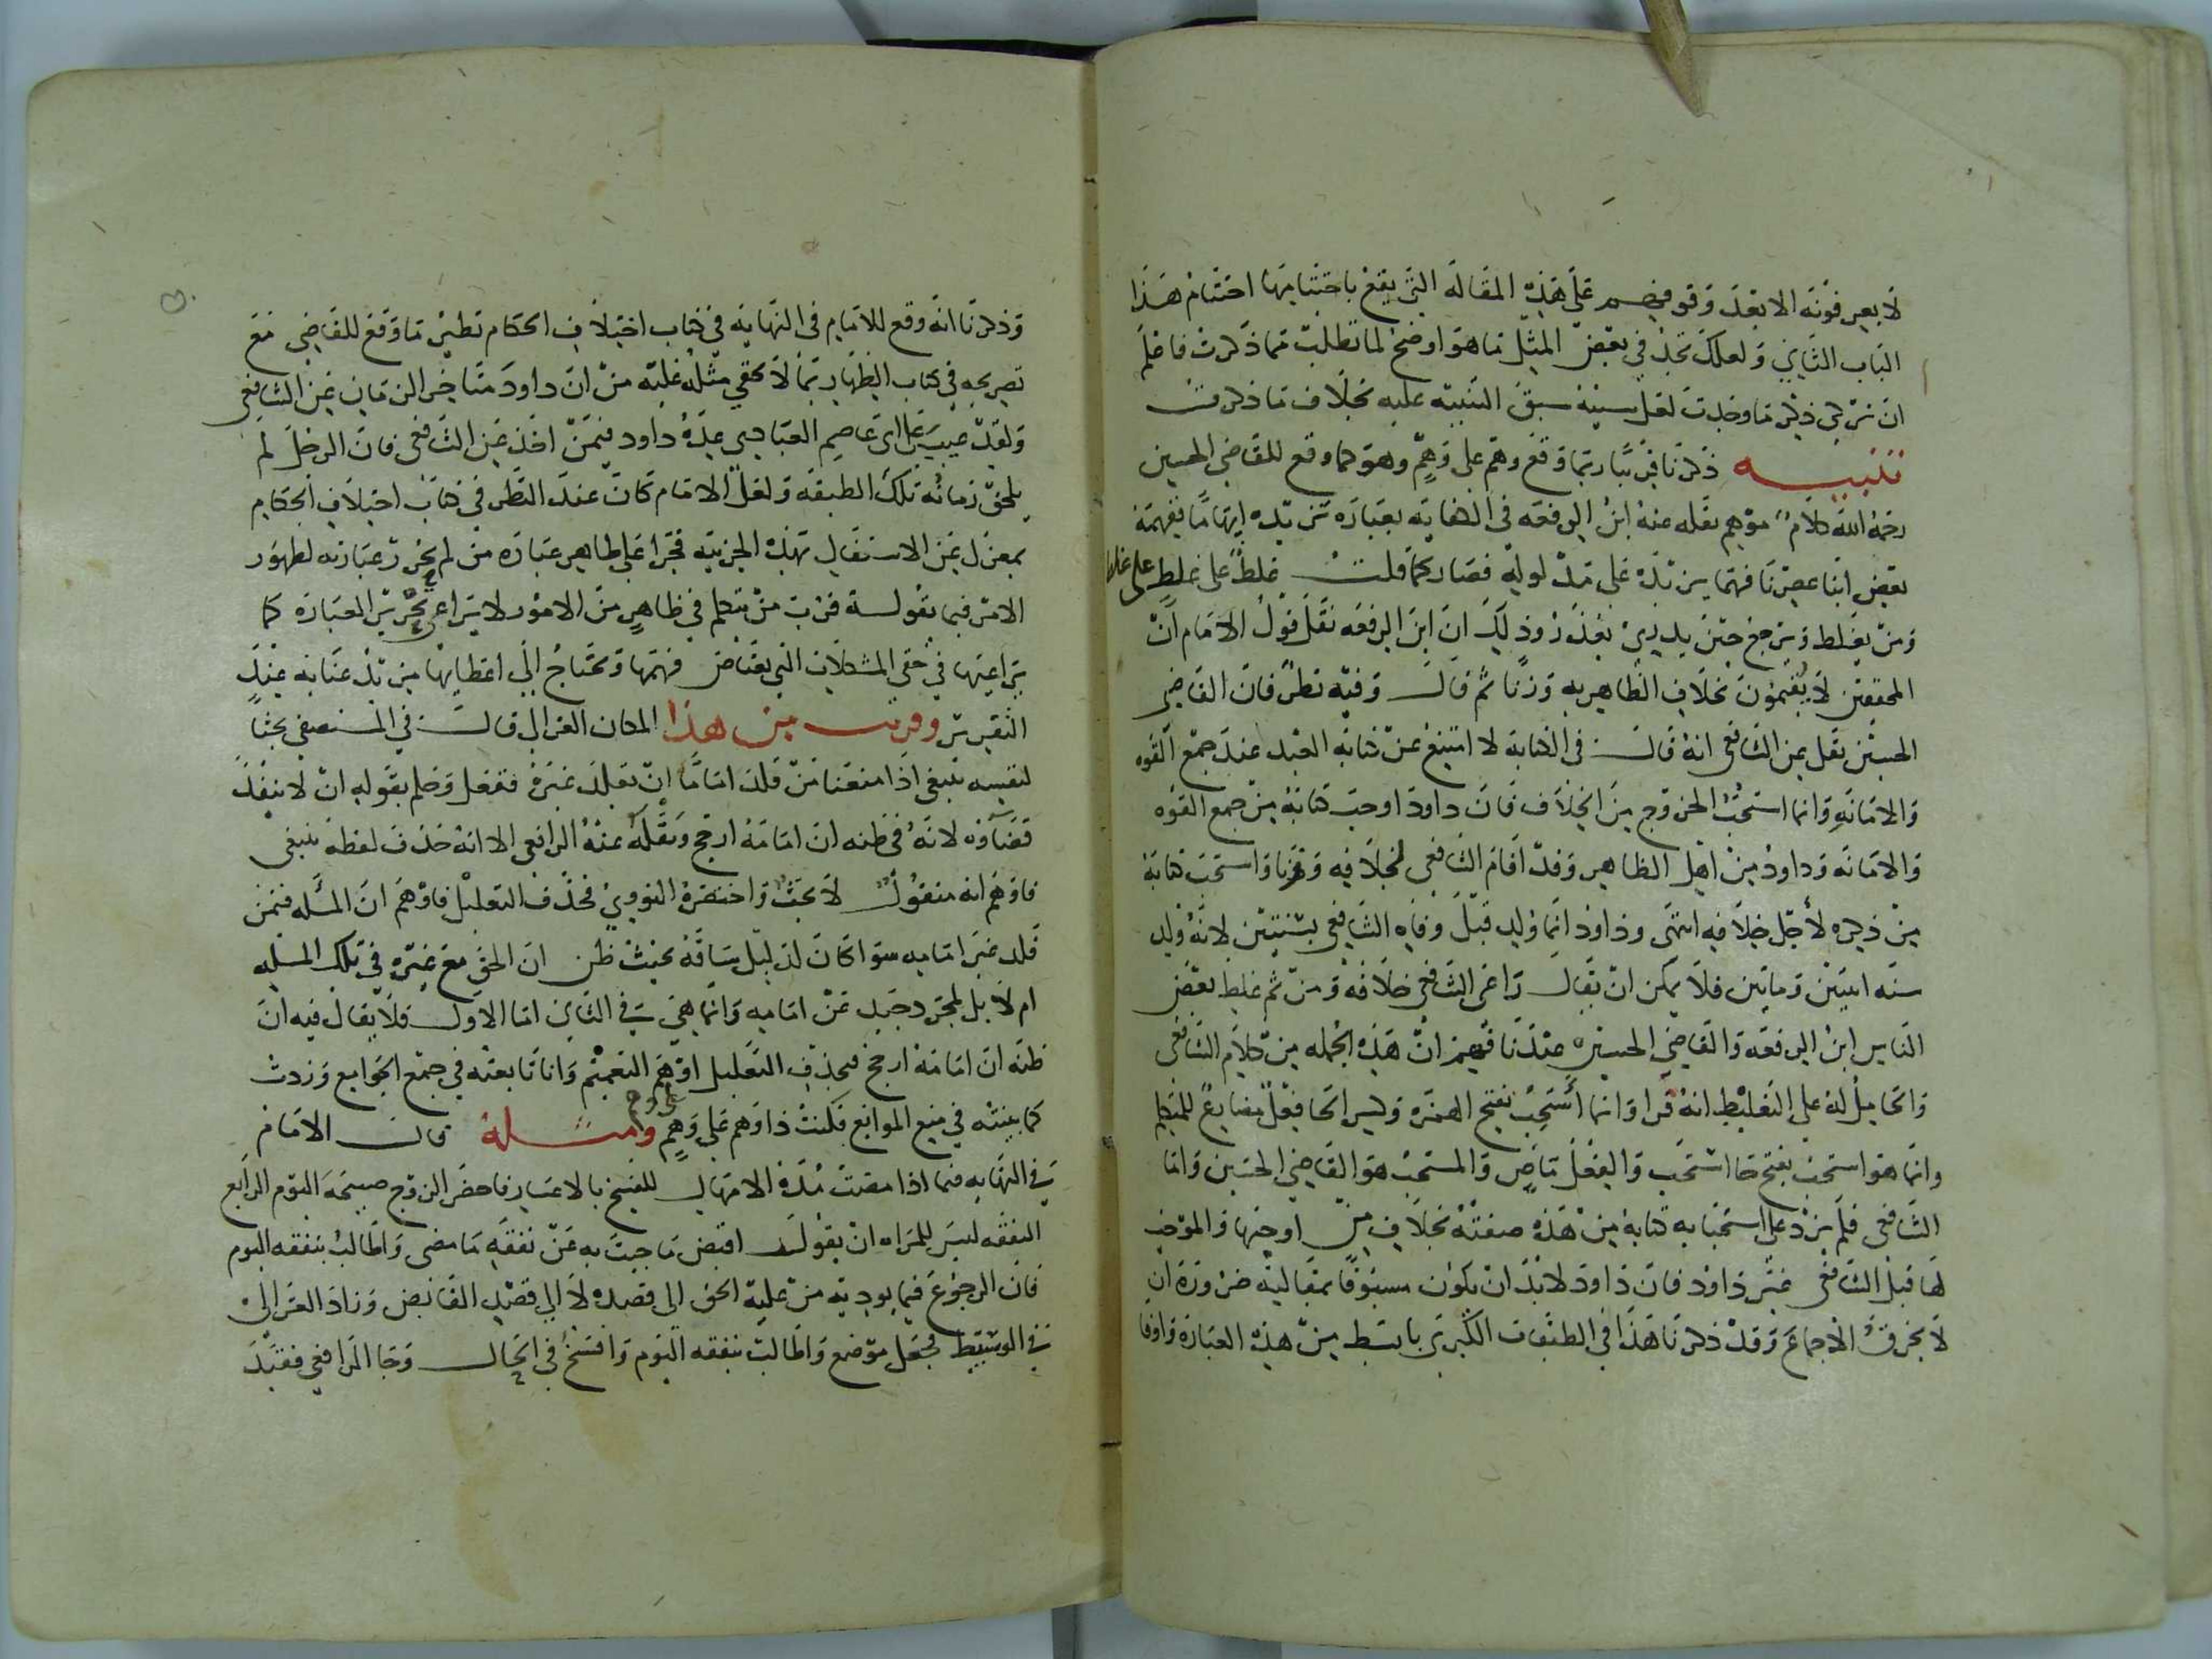 لا يعرفونه الا بعد وقوفهم على هذه المقالة التي يقع باختتامها اختتام هذا
الباب الثاني ولعلك تجد في بعض المثل ما هو اوضح لما تطلبت مما ذكرت فاعلم
ان تركي ذكر ما وجدت لعل سببه سبق التنبيه عليه بخلاف ما ذكرت
تنبيه ذكرنا قريبا ربما وقع وهم على وهم وهو كما وقع للقاضي الحسين
رحمه الله كلام موهم نقله عنه ابن الرفعه في الكفايه بعباره تزيده ايهاما ففهمه
بعض ابنا عصرنا فهما يزيده على مدلوله فصار كما قلت غلط على غلط على غلط
ومن يغلط ويرجع حين يدري يعذر وذلك ان ابن الرفعه نقل قول الامام ان
المحققين لا يقيمون بخلاف الظاهريه وزنا ثم قال وفيه نظر فان القاضي
الحسين نقل عن الشافعي انه قال في الكتابة لا امتنع عن كتابة العبد عند جمع القوه
والامانه وانما استحب الخروج من الخلاف فان داود اوجب كتابة من جمع القوه
والامانه وداود من اهل الظاهر وقد اقام الشافعي لخلافه وزنا واستحب كتابة
من ذكره لاجل خلافه انتهى وداود انما ولد قبل وفاه الشافعي بسنتين لانه ولد
سنه اثنتين ومايتين فلا يمكن ان يقال راعى الشافعي خلافه ومن ثم غلط بعض
الناس ابن الرفعه والقاضي الحسين عندنا فهم ان هذه الجمله من كلام الشافعي
والحامل له على التغليط انه قرا وانما أستحب بفتح الهمزه وكسر الحا فعل مضارع للمتكلم
وانما هو استحب بفتح حا استحب والفعل ماض والمستحب هو القاضي الحسين واما
الشافعي فلم يزد على استحبابه كتابة من هذه صفته بخلاف من اوجبها والموجب
لها قبل الشافعي غير داود فان داود لا بد ان يكون مسبوقا بمقالته ضرورة ان
لا يخرق الاجماع وقد ذكرنا هذا في الطبقات الكبرى بابسط من هذه العبارة واوفا
وذكرنا انه وقع للامام في النهايه في كتاب اختلاف الحكام نظير ما وقع للقاضي مع
تصريحه في كتاب الظهار بما لا يخفى مثله عليه من ان داود متاخر الزمان عن الشافعي
ولقد عيب على ابي عاصم العبادي عده داود فيمن اخذ عن الشافعي فان الرجل لم
يلحق زمانه تلك الطبقه ولعل الامام كان عند النظر في كتاب اختلاف الحكام
بمعزل عن الاستقال بهذه الجزييه فجرا على ظاهر عباره من لم يحرر عبارته لظهور
الامر فيما يقوله فرب من يتكلم في ظاهر من الامور لا يراعي تحرير العبارة كما
يراعيها في حقي المشكلات التي يعتاض فهمها وتحتاج الى اعطايها مزيد عنايه عند
التقرير وقريب من هذا المكان الغزالي قال في المستصفى بحثا
لنفسه ينبغي اذا منعنا من قلد اماما ان يقلد غيره ففعل وحكم بقوله ان لا ينفذ
قضاوه لانه في ظنه ان امامه ارجح ونقله عنه الرافعي الا انه حذف لفظه ينبغي
فاوهم انه منقول لا بحث واختصره النووي فحذف التعليل فاوهم ان المسله فيمن
قلد غير امامه سوا كان لدليل ساقه بحيث ظن ان الحق مع غيره في تلك المسله
ام لا بل لمجرد حيد عن امامه وانما هي في الثاني اما الاول فلا يقال فيه ان
ظنه ان امامه ارجح فبحذف التعليل اوهم التعميم وانا تابعته في جمع الجوامع وزدت
كما بينته في منع الموانع فكنت ذا وهم على وهم وامثلة قال الامام
في النهايه فيما اذا مضت مدة الامهال للفسخ بالاعسار فاحضر الزوج صبيحه اليوم الرابع
النفقه ليس للمراه ان تقول اقبض ما جيت به عن نفقه ما مضى واطالب بنفقه اليوم
فان الرجوع فيما يوديه من عليه الحق الى قصده لا الى قصد القابض وزاد الغزالي
في الوسيط فجعل موضع واطالب بنفقه اليوم وافسخ في الحال وجا الرافعي فقيد